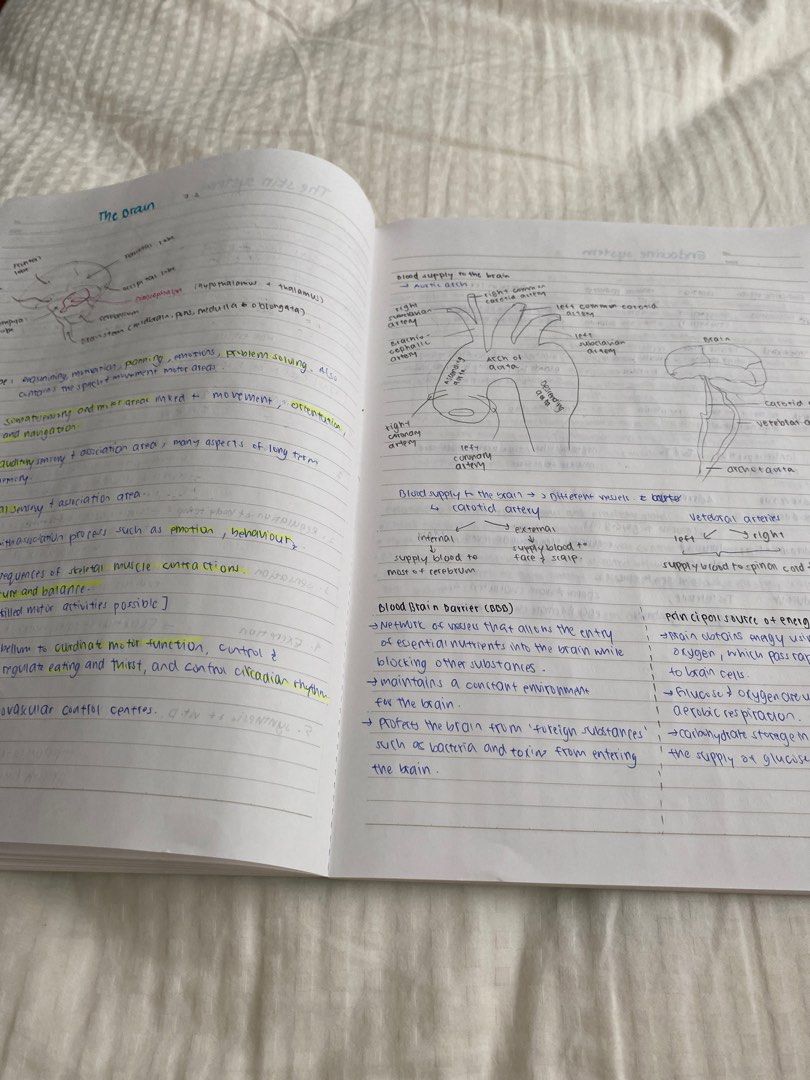 The Brain
Frontal lobe
parietal lobe
occipital lobe
Diencephalon (hypothalamus + thalamus)
cerebellum
Brainstem (midbrain, pons, medulla
lobe
: reasoning, motivation, planning, emotions, problem solving. Also
contains the speech + movement motor areas
somatosensory and motor areas linked to movement, orientation,
and navigation
auditory sensory + association area, many aspects of long term
sensory + association area.
association process such as emotion, behaviour
sequences of skeletal muscle contractions.
and balance.
motor activities possible]
to curdinate motor function, control &
regulate eating and thirst, and control circadian rhythm
ovascular control centres.
Blood supply to the brain
→ Aortic arch
right subclavian artery
right common carotid artery
left common carotid artery
Brachiocephalic artery
left subclavian artery
Ascending aorta
Arch of aorta
Descending aorta
right coronary artery
left coronary artery
Brain
carotid
vetebral a
arch of aorta
Blood supply to the brain → 2 Different vessels
↳ carotid artery
internal
external
supply blood to most of cerebrum
supply blood to face & scalp.
Vetebral arteries
left
right
supply blood to spinal cord
Blood Brain Barrier (BBB)
→ Network of vessels that allows the entry
of essential nutrients into the brain while
blocking other substances.
→ maintains a constant environment
for the brain.
→ Protects the brain from 'foreign substances'
such as bacteria and toxins from entering
the brain.
Principal source of energ
→ Brain obtains energy us
oxygen, which pass
to brain cells.
→ Glucose & oxygen are u
aerobic respiration.
→ carbohydrate storage in
the supply of glucose